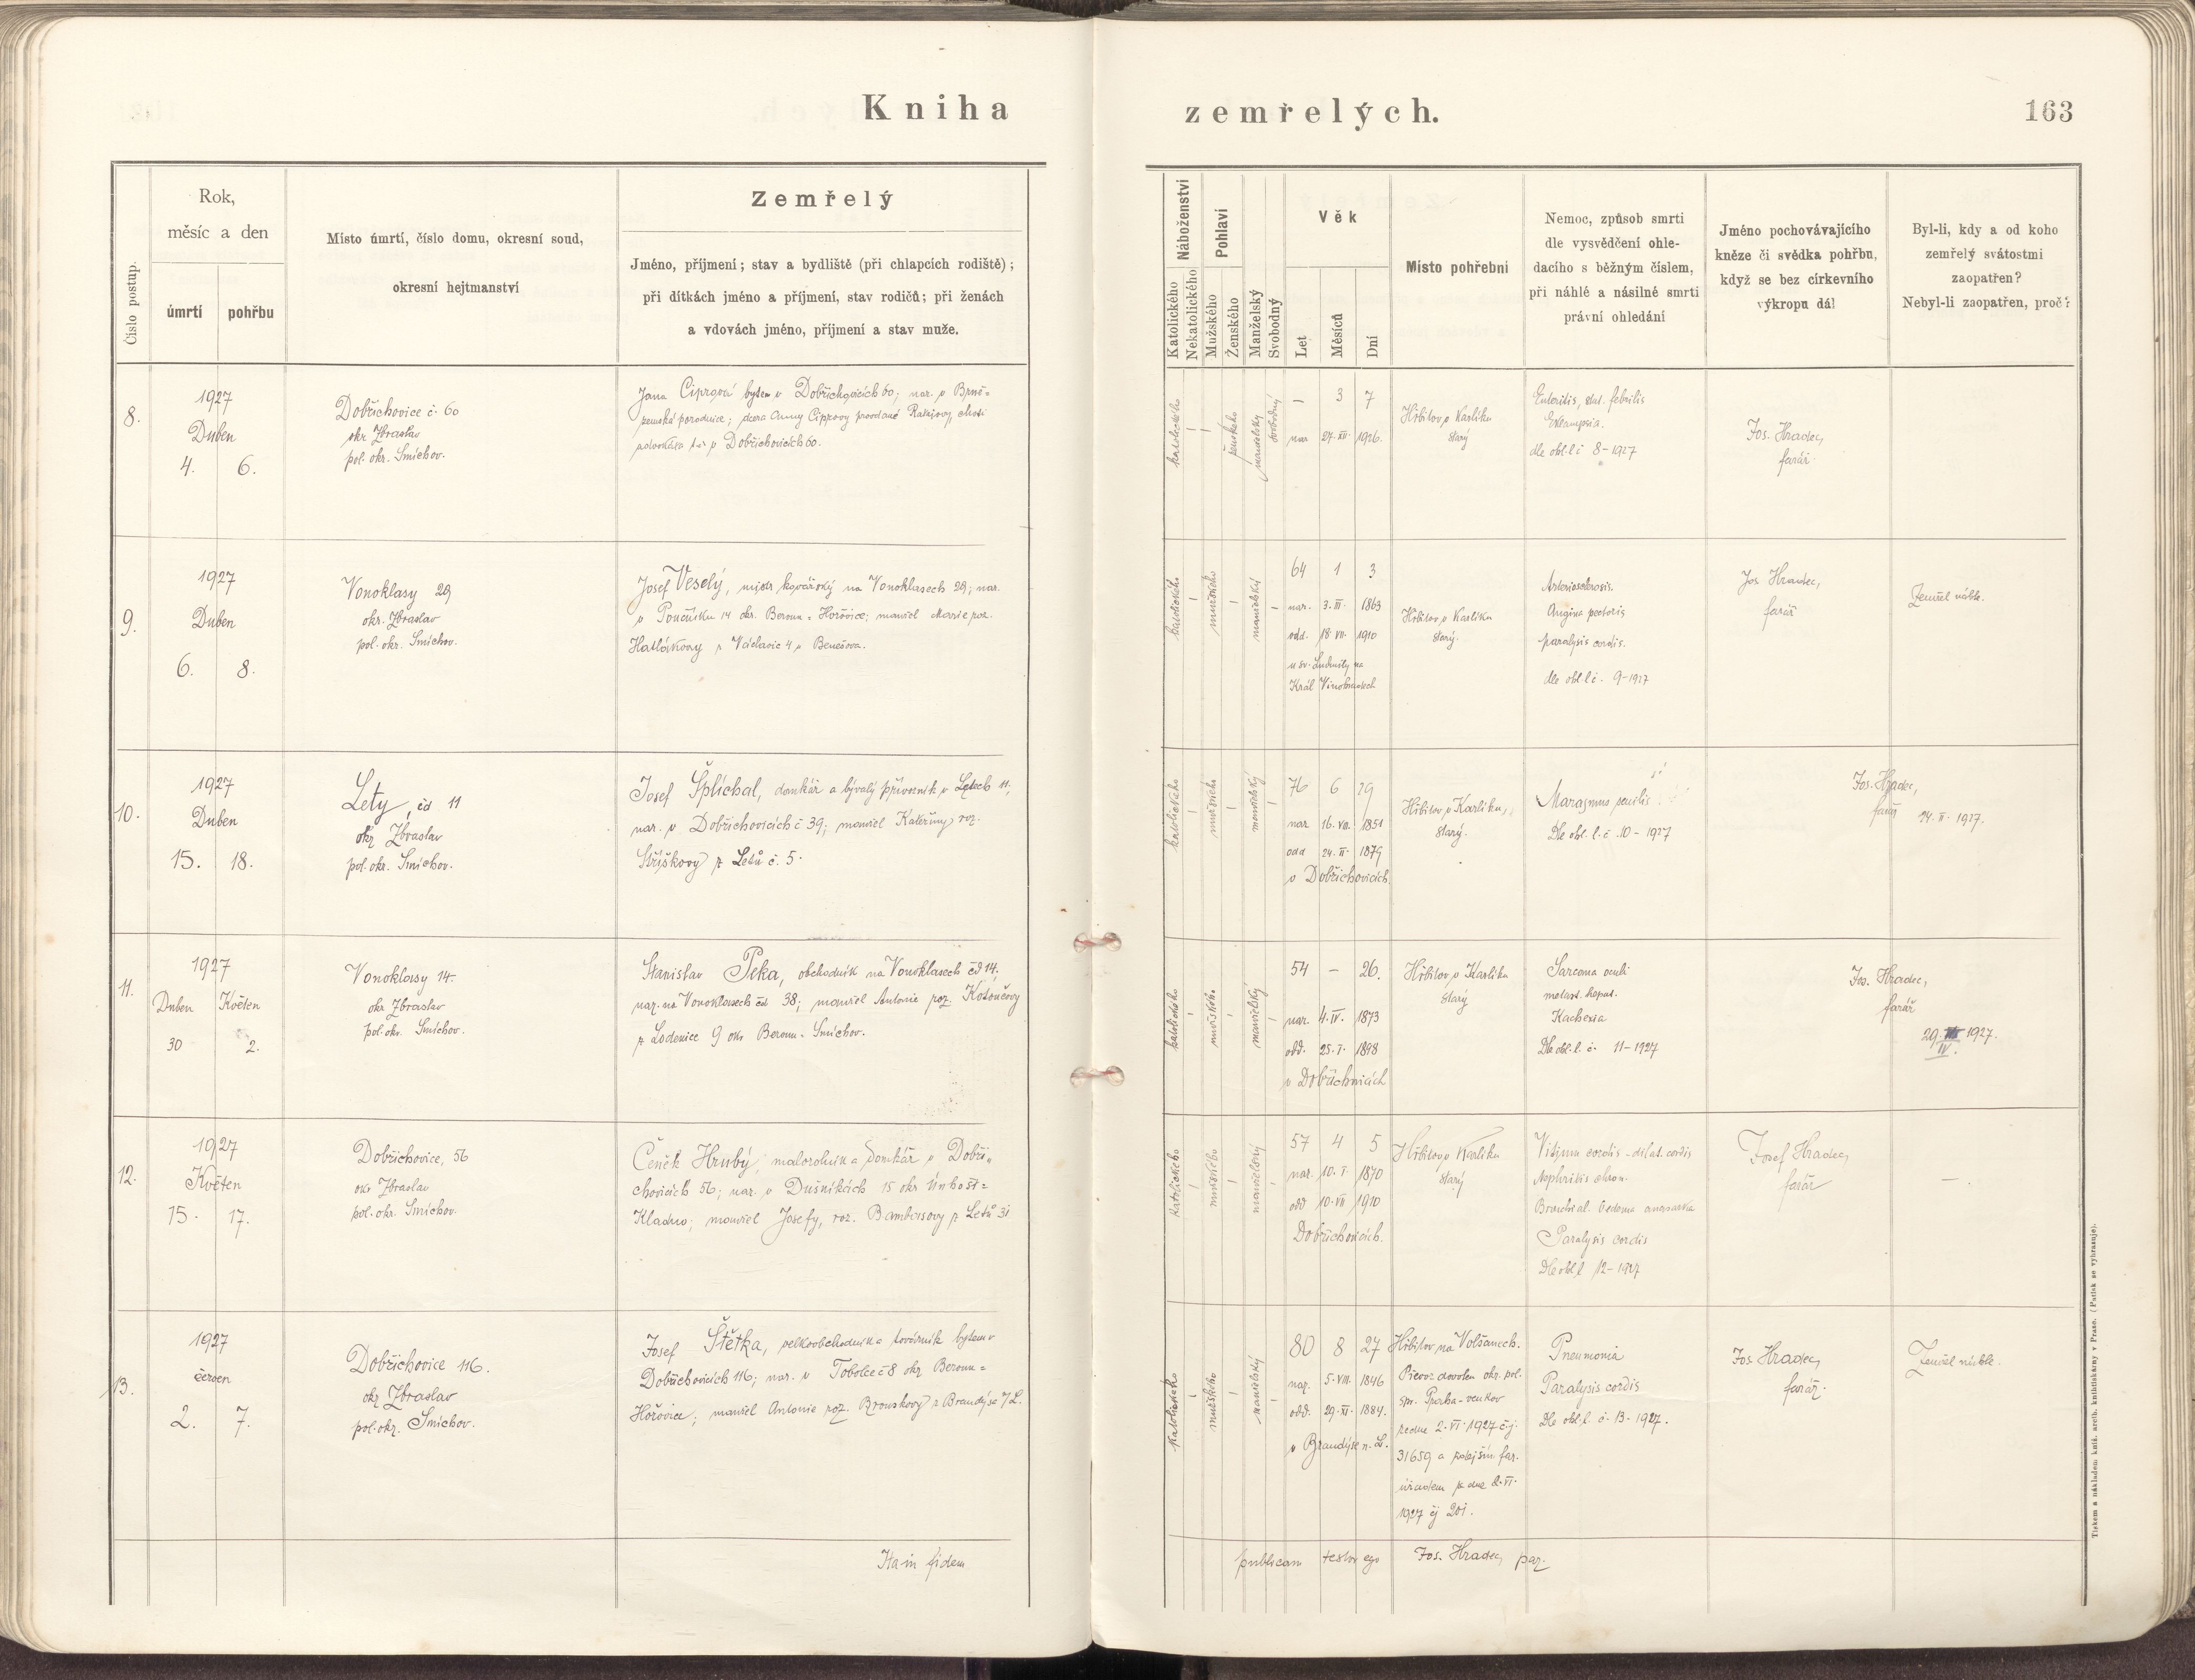 Kniha zemřelých.
163
Číslo postup.
Rok,
měsíc a den
úmrtí
pohřbu
Místo úmrtí, číslo domu, okresní soud,
okresní hejtmanství
Zemřelý
Jméno, příjmení; stav a bydliště (při chlapcích rodiště);
při dítkách jméno a příjmení, stav rodičů; při ženách
a vdovách jméno, příjmení a stav muže.
Náboženství
Katolického
Nekatolického
Pohlaví
Mužského
Ženského
Manželský
Svobodný
Věk
Let
Měsíců
Dní
Místo pohřební
Nemoc, způsob smrti
dle vysvědčení ohle-
dacího s běžným číslem,
při náhlé a násilné smrti
právní ohledání
Jméno pochovávajícího
kněze či svědka pohřbu,
když se bez církevního
výkropu dál
Byl-li, kdy a od koho
zemřelý svátostmi
zaopatřen?
Nebyl-li zaopatřen, proč?
8.
1927
Duben
4. 6.
Dobřichovice č. 60
okr Zbraslav
pol. okr. Smíchov.
Jana Ciprová bytem v Dobřichovicích 60; nar. v Brně-
zemská porodnice; dcera Anny Ciprovy
v Dobřichovicích 60.
katolického
ženského
– 3 7
nar 27. XII. 1926.
Hřbitov v Karlíku
starý
Enteritis, stat. febrilis
Eklampsia.
dle obl. l č 8-1927
Jos. Hradec,
farář.
9.
1927
Duben
6. 8.
Vonoklasy 29
okr. Zbraslav
pol. okr. Smíchov.
Josef Veselý, mistr kovářský na Vonoklasech 29; nar.
v 14 okr. Beroun - Hořovice; manžel Marie roz.
Hatlákovy z Václavic 4 u Benešova.
katolického
mužského
manželský
64 1 3
nar. 3. III. 1863
odd. 18. VII. 1910
u sv. Ludmily na
Král Vinohradech
Hřbitov v Karlíku
starý.
Arteriosclerosis.
Angina pectoris
paralysis cordis.
dle obl. l č. 9-1927
Jos Hradec,
farář
Zemřel náhle.
10.
1927
Duben
15. 18.
Lety, čd 11
okr Zbraslav
pol. okr. Smíchov.
Josef Šplíchal, domkář a bývalý přívozník v Letech 11;
nar. v Dobřichovicích č 39; manžel Kateřiny roz.
Stříškovy z Letů č. 5.
katolického
mužského
manželský
76 6 29
nar 16. VII. 1851
odd 24. II. 1879
v Dobřichovicích
Hřbitov v Karlíku,
starý.
Marasmus senilis
Dle obl. l. č. 10-1927
Jos. Hradec,
farář
24. II. 1927.
11.
1927
Duben Květen
30 2.
Vonoklasy 14.
okr Zbraslav
pol. okr. Smíchov.
Stanislav Peka, obchodník na Vonoklasech čd 14;
nar. na Vonoklasech čd 38; manžel Antonie roz. Kotoučovy
z Loděnice 9 okr Beroun. Smíchov.
katolického
mužského
manželský
54 – 26.
nar. 4. IV. 1873
odd. 25. I. 1898
v Dobřichovicích
Hřbitov v Karlíku
starý
Sarcoma oculi
metast. hepat.
Kachexia
Dle obl. l. č. 11-1927
Jos. Hradec,
farář
29. 1927.
IV.
12.
1927
Květen
15. 17.
Dobřichovice, 56
okr Zbraslav
pol. okr. Smíchov.
Čeněk Hrubý, malorolník a domkář v Dobři-
chovicích 56; nar. v Dušníkách 15 okr Unhošť-
Kladno; manžel Josefy, roz. Bambasovy z Letů 31
katolického
mužského
manželský
57 4 5
nar. 10. I. 1870
odd 10. VII 1910
Dobřichovicích.
Hřbitov v Karlíku
starý
Vitium cordis - dilat. cordis
Nephritis chron.
Oedema anasarka
Paralysis cordis
Dle obl. l 12-1927
Josef Hradec,
farář
– .
13.
1927
červen
2. 7.
Dobřichovice 116.
okr Zbraslav
pol. okr. Smíchov.
Josef Štětka, velkoobchodník a továrník bytem v
Dobřichovicích 116; nar. v Tobolce č 8 okr Beroun =
Hořovice; manžel Antonie roz. z Brandýsa 7/L.
katolického
mužského
manželský
80 8 27
nar. 5. VIII. 1846
odd. 29. XI. 1884.
v Brandýse n. L.
Hřbitov na Volšanech.
Převoz dovolen okr. pol.
spr. Praha-venkov
ze dne 2. VI. 1927 č.j.
31659 a zdejším far.
úřadem ze dne 2. VI.
1927 čj 201.
Pneumonia
Paralysis cordis
Dle obl. l. č. 13-1927.
Jos Hradec,
farář.
Zemřel náhle.
Ita in fidem publicam testor ego Jos. Hradec, par.
Tiskem a nákladem kníž. arcib. knihtiskárny v Praze. (Patisk se vyhrazuje).